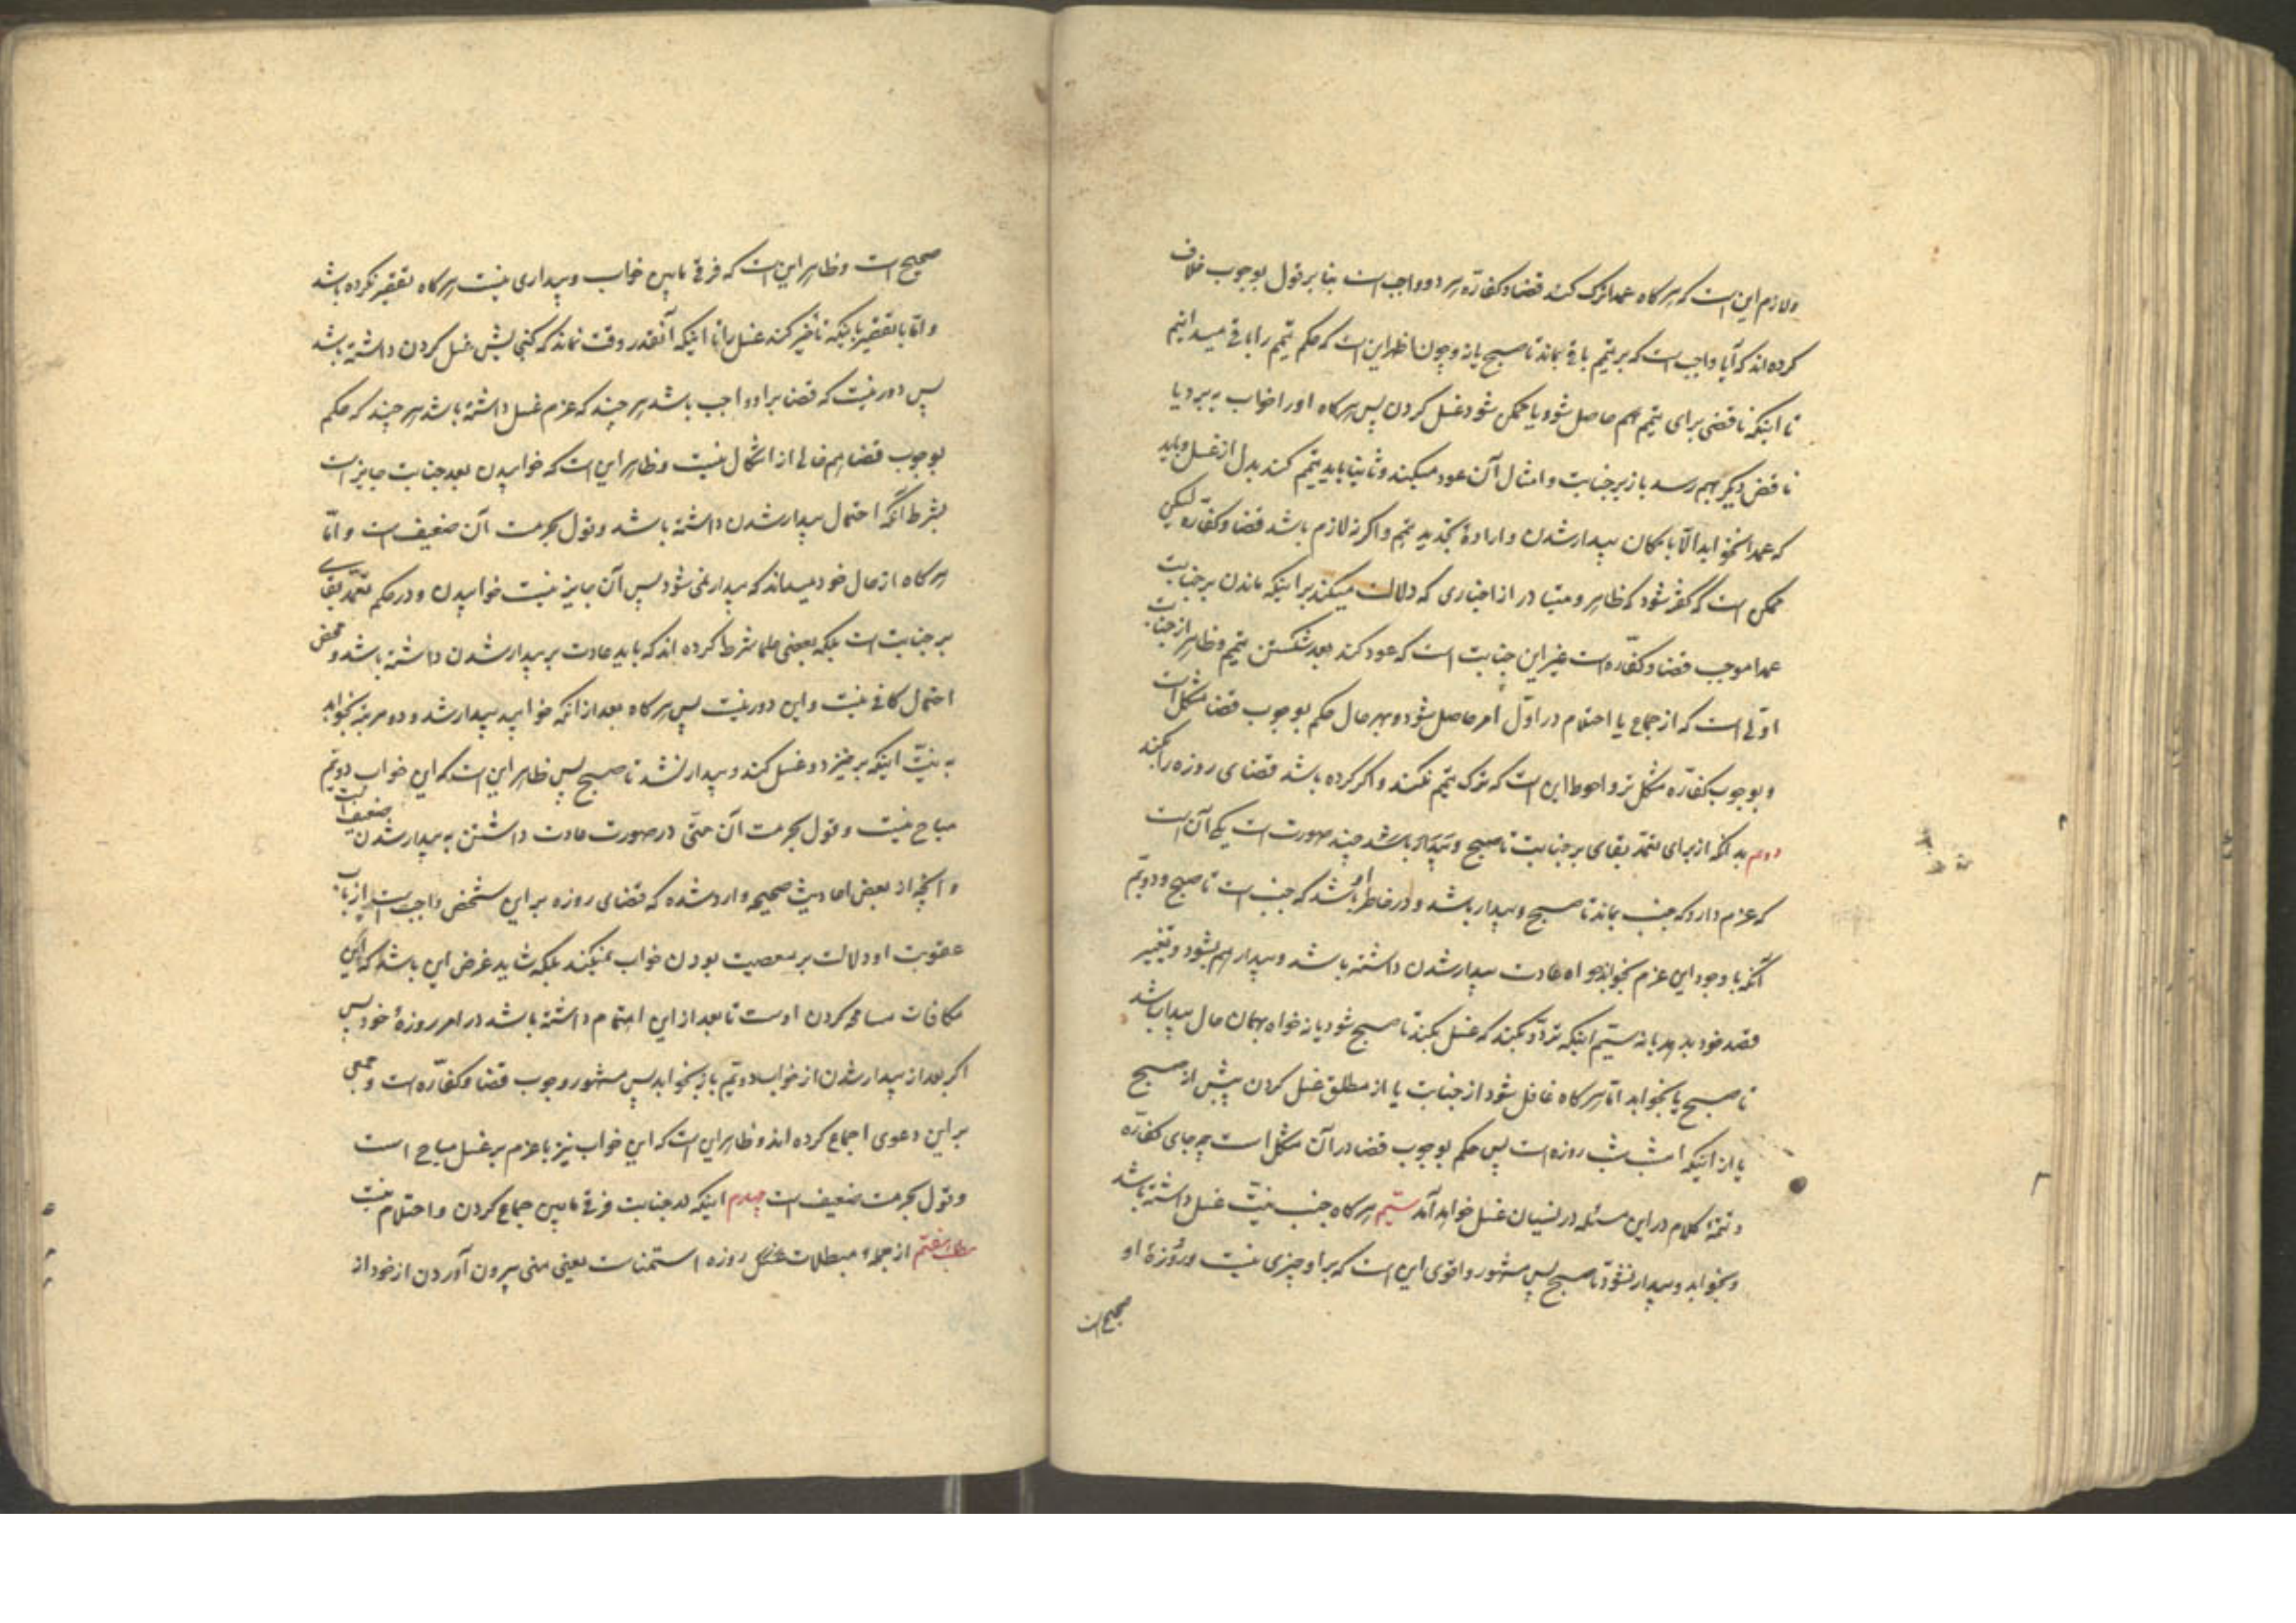 ولازم این است که هرکاه عمدا ترک کند قضا و کفاره هر دو واجب است بنا بر قول بوجوب خلاف
کرده‌اند که آیا واجب است که بر تیمم باقی بماند تا صبح یا نه و چون اظهر این است که حکم تیمم را باقی میدانیم
تا اینکه ناقضی برای تیمم بهم حاصل شود یا ممکن شود غسل کردن پس هرکاه او را خواب به برد یا
ناقض دیگر بهم رسد باز بر جنابت و امثال آن عود میکند و ثانیا باید تیمم کند بدل از غسل و باید
که عمدا نخوابد الّا بامکان بیدار شدن و ارادهٔ تجدید تیمم و اگر نه لازم باشد قضا و کفّاره لیکن
ممکن است که گفته شود که ظاهر و متبادر از اخباری که دلالت میکند بر اینکه ماندن بر جنابت
عمدا موجب قضا و کفّاره است غیر این جنابت است که عود کند بعد شکستن تیمم و ظاهر از جنابت
اوّلی است که از جماع یا احتلام در اوّل امر حاصل شود و بهر حال حکم بوجوب قضا مشکل است
و بوجوب کفّاره مشکل‌تر و احوط این است که ترک تیمم نکند و اگر کرده باشد قضای روزه را بکند
دوم بدانکه از برای تعمّد بقای بر جنابت تا صبح و بیدار باشد چند صورت است یکی آن است
که عزم دارد که جنب بماند تا صبح و بیدار باشد و در خاطر او باشد که جنب است تا صبح و دویّم
آنکه با وجود این عزم بخوابد خواه عادت بیدار شدن داشته باشد و بیدار هم بشود و تغییر
قصد خود بدهد یا نه سیّم اینکه تردّد بکند که غسل بکند تا صبح شود یا نه خواه بهمان حال بیدار باشد
تا صبح یا بخوابد امّا هرکاه غافل شود از جنابت یا از مطلق غسل کردن پیش از صبح
یا از اینکه امشب شب روزه است پس حکم بوجوب قضا در آن مشکل است چه جای کفّاره
و تتمّهٔ کلام در این مسئله در نسیان غسل خواهد آمد سیّم هرکاه جنب نیّت غسل داشته باشد
و بخوابد و بیدار نشود تا صبح پس مشهور و اقوی این است که بر او چیزی نیست و روزهٔ او
صحیح است
صحیح است و ظاهر این است که فرقی مابین خواب و بیداری نیست هرکاه تقصیر نکرده باشد
و امّا با تقصیر باینکه تأخیر کند غسل را تا اینکه آنقدر وقت نماند که کنجایش غسل کردن داشته باشد
پس دور نیست که قضا بر او واجب باشد هر چند که عزم غسل داشته باشد هر چند که حکم
بوجوب قضا هم خالی از اشکال نیست و ظاهر این است که خوابیدن بعد جنابت جایز است
بشرط آنکه احتمال بیدار شدن داشته باشد و قول بحرمت آن ضعیف است و امّا
هرکاه از حال خود میداند که بیدار نمی شود پس آن جایز نیست خوابیدن و در حکم تعمّد بقای
بر جنابت است بلکه بعضی علما شرط کرده اند که باید عادت بر بیدار شدن داشته باشد و محض
احتمال کافی نیست و این دور نیست پس هرکاه بعد از آنکه خوابید بیدار شد و دو مرتبه بخوابد
به نیّت اینکه برخیزد و غسل کند و بیدار نشد تا صبح پس ظاهر این است که این خواب دویّم
مباح نیست و قول بحرمت آن حتّی در صورت عادت داشتن به بیدار شدن ضعیف است
و آنچه از بعض احادیث صحیحه وارد شده که قضای روزه بر این شخص واجب است از باب
عقوبت او دلالت بر معصیت بودن خواب نمیکند بلکه شاید غرض این باشد که این
مکافات مسامحه کردن اوست تا بعد از این اهتمام داشته باشد در امر روزهٔ خود پس
اگر بعد از بیدار شدن از خواب دویّم باز بخوابد پس مشهور وجوب قضا و کفّاره است و جمعی
بر این دعوی اجماع کرده اند و ظاهر این است که این خواب نیز با عزم بر غسل مباح است
و قول بحرمت ضعیف است چهارم اینکه در جنابت فرقی مابین جماع کردن و احتلام نیست
مطلب هفتم از جملهٔ مبطلات روزه استمناست یعنی منی بیرون آوردن از خود از